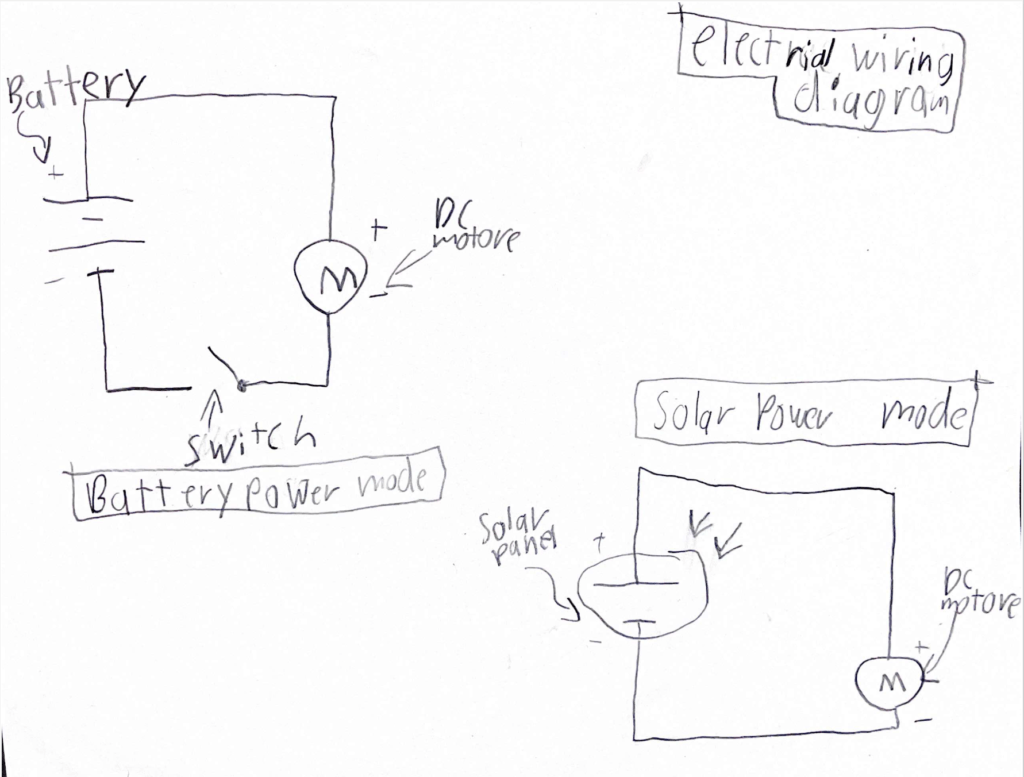 electrial wiring
diagram
Battery
+
-
-
M
+
-
DC
motore
switch
Battery power mode
Solar Power mode
Solar
panel
+
-
M
+
-
DC
motore